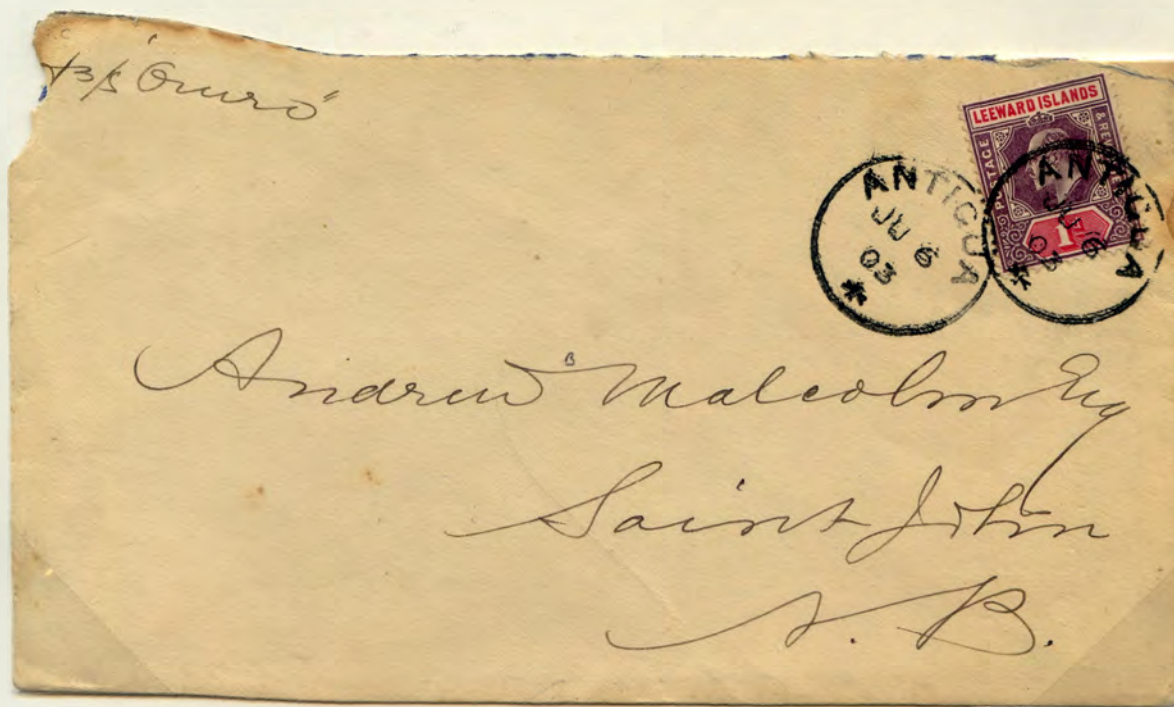 "Oruro"
LEEWARD ISLANDS
POSTAGE
& REVENUE
1D
ANTIGUA
JU 6
03
ANTIGUA
JU 6
03
Andrew Malcolm Esq
Saint John
N. B.